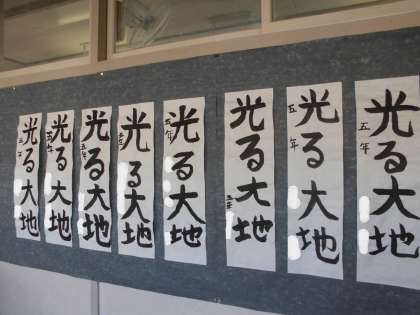 光る大地
五年
光る大地
五年
光る大地
五年
光る大地
五年
光る大地
五年
光る大地
五年
光る大地
五年
光る大地
五年